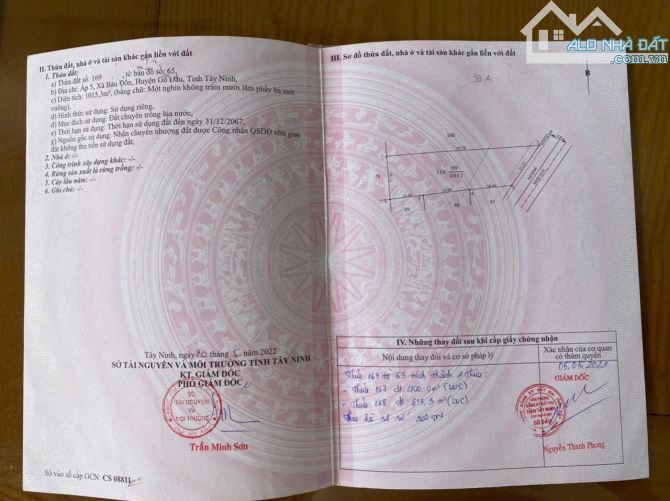 ALO NHÀ ĐẤT
II. Thửa đất, nhà ở và tài sản khác gắn liền với đất
1. Thửa đất:
a) Thửa đất số: 169 , tờ bản đồ số: 65,
b) Địa chỉ: Ấp 5, Xã Bàu Đồn, Huyện Gò Dầu, Tỉnh Tây Ninh,
c) Diện tích: 1015,3m², (bằng chữ: Một nghìn không trăm mười lăm phẩy ba mét
vuông),
d) Hình thức sử dụng: Sử dụng riêng,
đ) Mục đích sử dụng: Đất chuyên trồng lúa nước,
e) Thời hạn sử dụng: Thời hạn sử dụng đất đến ngày 31/12/2067,
g) Nguồn gốc sử dụng: Nhận chuyển nhượng đất được Công nhận QSDĐ như giao
đất không thu tiền sử dụng đất,
2. Nhà ở: -/-
3. Công trình xây dựng khác: -/-
4. Rừng sản xuất là rừng trồng: -/-
5. Cây lâu năm: -/-
6. Ghi chú: -/-
Tây Ninh, ngày tháng năm 2022
SỞ TÀI NGUYÊN VÀ MÔI TRƯỜNG TỈNH TÂY NINH
KT. GIÁM ĐỐC
PHÓ GIÁM ĐỐC
SỞ
TÀI NGUYÊN
VÀ
MÔI TRƯỜNG
Trần Minh Sơn
Số vào sổ cấp GCN: CS 08811
III. Sơ đồ thửa đất, nhà ở và tài sản khác gắn liền với đất
B
LUC
IV. Những thay đổi sau khi cấp giấy chứng nhận
Nội dung thay đổi và cơ sở pháp lý
Xác nhận của cơ quan
có thẩm quyền
05.05.2023
GIÁM ĐỐC
Thửa 169 tờ 65 tách thành 2 thửa:
- Thửa 187 dt 400,0 m² (LUC)
- Thửa 188 dt 615,3 m² (LUC)
Theo hồ sơ số
TỈNH TÂY NINH
GÒ DẦU
Nguyễn Thanh Phong